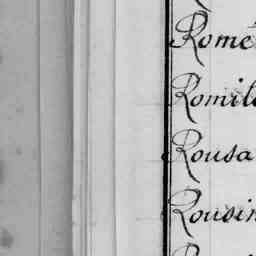 Rome
Romil
Rousa
Rousin